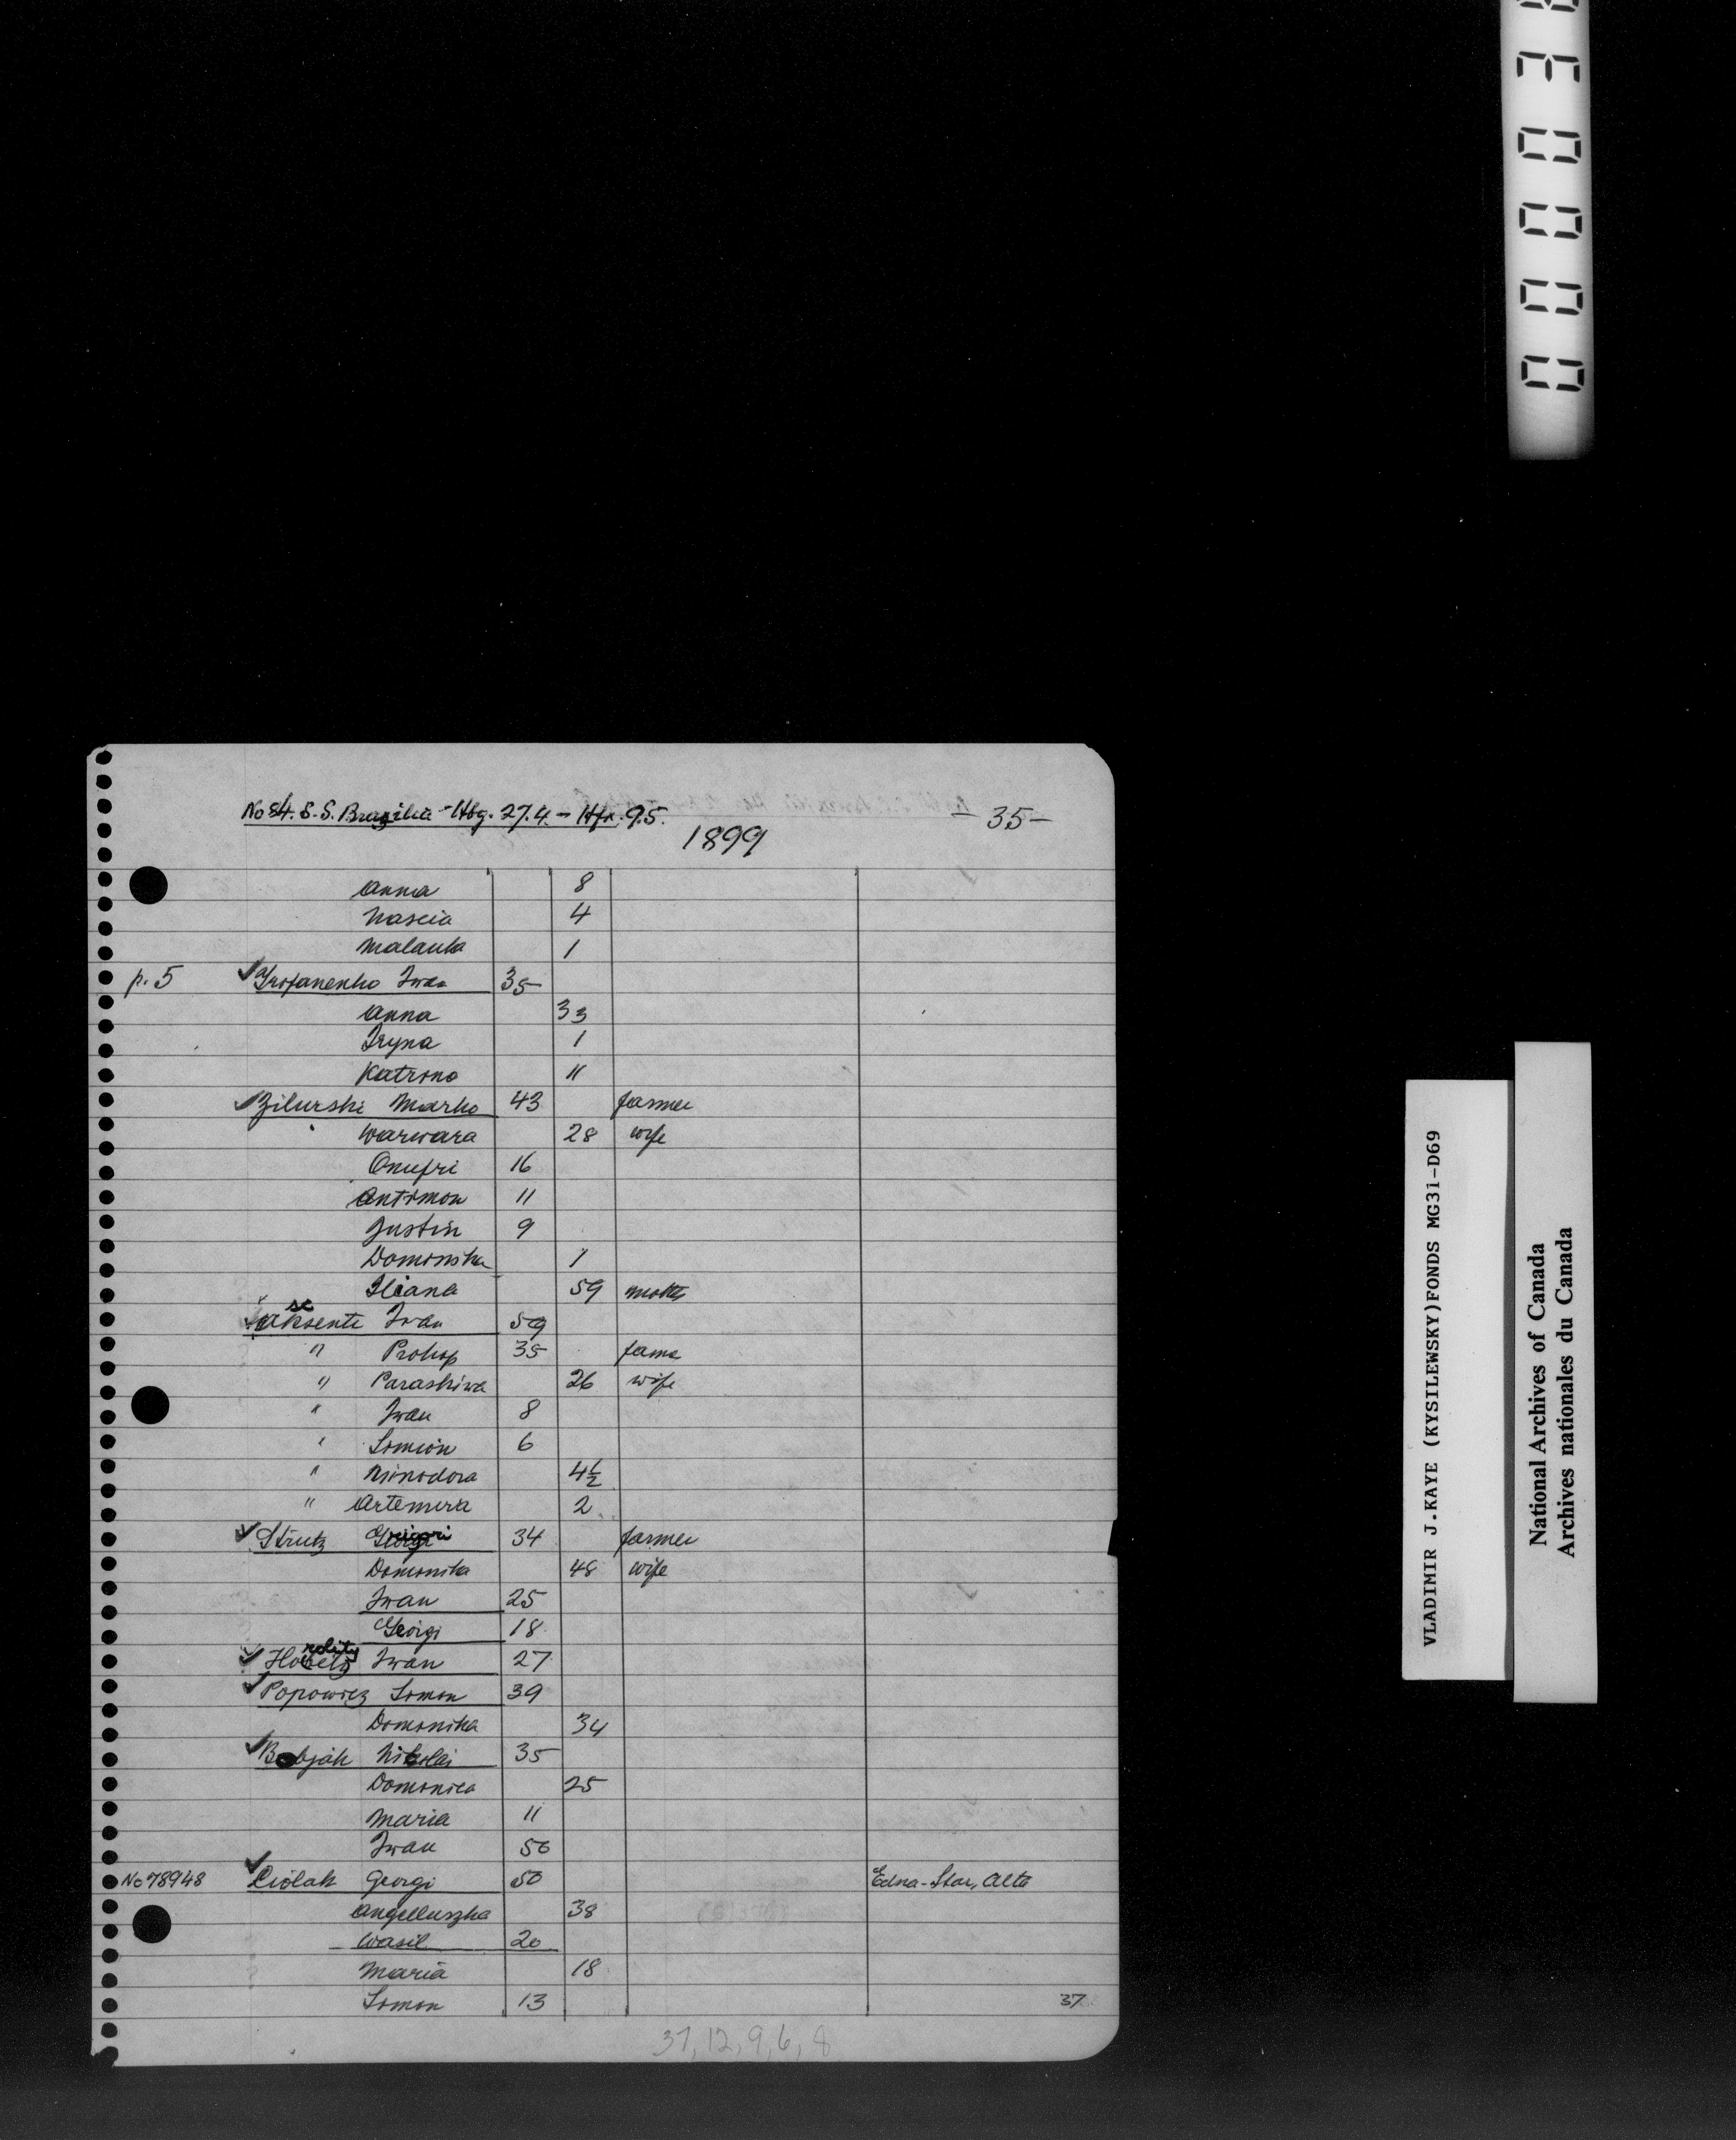 No 84. S.S. Brazilia - Hbg. 27.4. - Hfx. 9.5.
- 35 -
1899
Anna 8
Nascia 4
Malanka 1
p. 5 ✓ Trofanenko Iwan 35
Anna 33
Iryna 1
Katrina 11
✓ Zilurski Marko 43 farmer
Warwara 28 wife
Onufri 16
Antimon 11
Justin 9
Domonika 1
Iliana 59 mother
✓ Aksenti Iwan 59
sc
" Prokop 35 farme
" Paraskiwa 26 wife
" Iwan 8
" Simion 6
" Minodora 4½
" Artemira 2
✓ Strutz Grigori 34 farmer
Domonika 48 wife
Iwan 25
Georgi 18
✓ Iwan 27
✓ Popowicz Simon 39
Domonika 34
✓ Bobjak Nikolai 35
Domonica 25
Maria 11
Iwan 50
No 78948 ✓ Ciolak Georgi 50 Edna-Star, Alta
Angelluszka 38
Wasil 20
Maria 18
Simon 13
37
37, 12, 9, 6, 8
VLADIMIR J.KAYE (KYSILEWSKY)FONDS MG31-D69
National Archives of Canada
Archives nationales du Canada